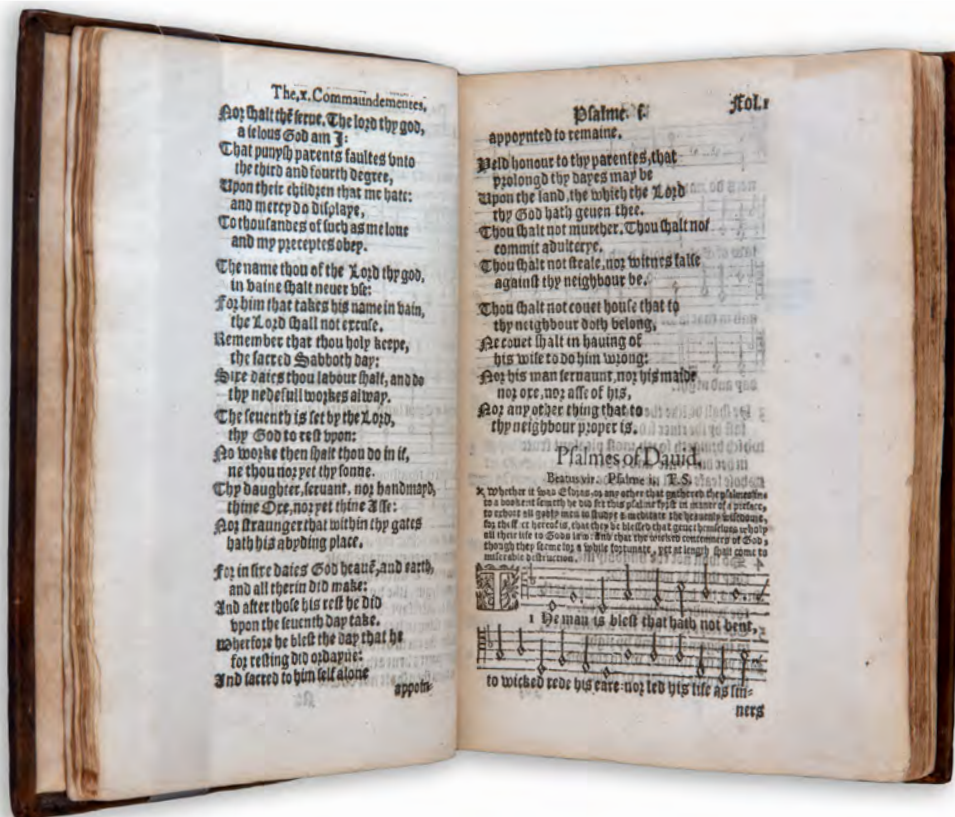 The.x. Commaundementes.
Nor shalt thē serue. The lord thy god,
a ielous God am I:
That punysh parents faultes vnto
the third and fourth degree,
Upon their children that me hate:
and mercy do displaye,
To thousandes of such as me loue
and my preceptes obey.
The name thou of the Lord thy god,
in vaine shalt neuer vse:
For him that takes his name in vain,
the Lord shall not excuse.
Remember that thou holy keepe,
the sacred Sabboth day:
Sixe daies thou labour shalt, and do
thy nedefull workes alway.
The seuenth is set by the Lord,
thy God to rest vpon:
No worke then shalt thou do in it,
ne thou nor yet thy sonne.
Thy daughter, seruant, nor handmayd,
thine Oxe, nor yet thine Asse:
Nor straunger that within thy gates
hath his abyding place.
For in sixe daies God heauē, and earth,
and all therin did make:
And after those his rest he did
vpon the seuenth day take.
Wherfore he blest the day that he
for resting did ordayne:
And sacred to him self alone
appoin-
Psalme. Fol.1
appoynted to remaine.
Yeld honour to thy parentes, that
prolongd thy dayes may be
Upon the land, the which the Lord
thy God hath geuen thee.
Thou shalt not murther. Thou shalt not
commit adulterye.
Thou shalt not steale, nor witnes false
against thy neighbour be.
Thou shalt not couet house that to
thy neighbour doth belong,
Ne couet shalt in hauing of
his wife to do him wrong:
Nor his man seruaunt, nor his maide
nor oxe, nor asse of his,
Nor any other thing that to
thy neighbour proper is.
Psalmes of Dauid.
Beatus vir. Psalme i. T.S.
Whether it was Esdras, or any other that gathered the psalmes
to a booke it semeth he did set this psalme fyrst in maner of a preface,
to exhort all godly men to studye & meditate the heauenly wisedome,
for theffect hereof is, that they be blessed that geue themselues wholy
all their life to Gods law: and that the wicked contemners of God,
though they seeme for a while fortunate, yet at length shall come to
miserable destruction.
T
1 He man is blest that hath not bent,
to wicked rede his eare: nor led his life as sin-
ners